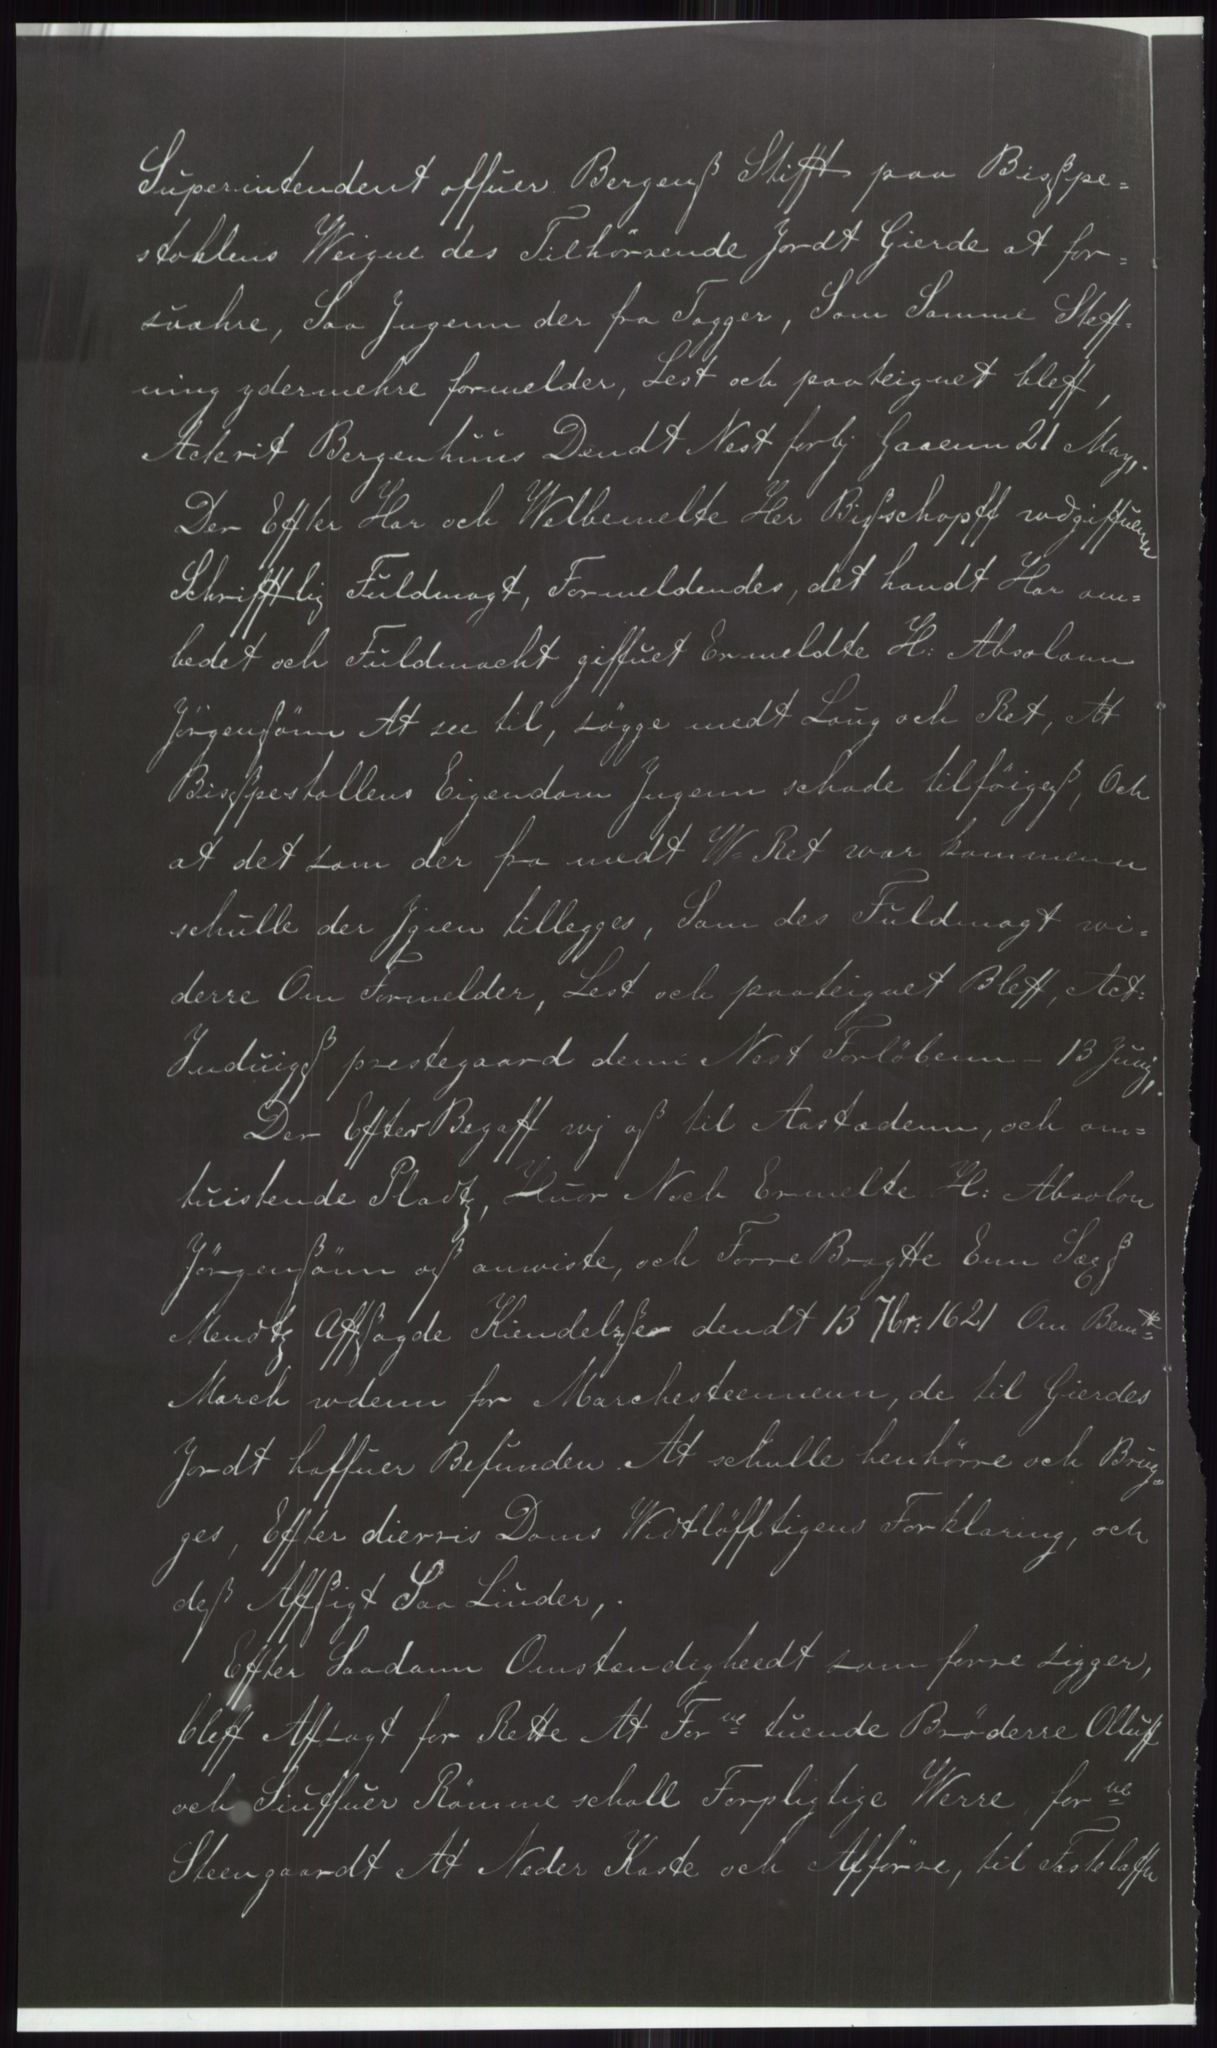 Superintendent offuer Bergenß Stifft paa Bisßpe=
stohlens Weigne des Tilhörrende Jordt Gierde at for=
suahre, Saa Jngenn der fra Tagger, Som Samme Steff=
ning ydermehre formelder, Lest och paateignet bleff,
Ackrit Bergenhuus Dendt Nest forbj Gaaenn 21 May,.
Der Effter Har och Welbemelte Her Bißschopff wdgiffuenn
Schrifftlig Fuldmagt, Formeldendes, det handt Har om=
bedet och Fuldmacht giffuet Ermeldte H: Absolonn
Jörgenßönn At see til, søgge medt Loug och Ret, At
Bisßpestollens Eigendom Jngenn schade tilföigeß, Och
at det som der fra medt W=Ret war kommenn
schulle der Jgien tillegges, Som des Fuldmagt wi=
derre Om Formelder, Lest och paateignet Bleff, Act:
Jnduigß prestegaard denn Nest Forlöbenn – 13 Junj,.
Der Effter Begaff wj oß til Aastædenn, och om=
tuistende Pladtz, Huor Noch Ermelte H: Absolon
Jörgenßönn oß anwiste, och Forre Bragtte Enn Sæxß
Mendtz Affßagde Kiendelsße dendt 13 7br: 1621 Om Bemte=
March wdenn for Marchesteennenn, de til Gierdes
Jordt haffuer Befunden At schulle henhörre och Brug=
ges, Effter dierris Doms Widtlöfftigens Forklaring, och
deß Affßigt Saa Liuder,.
Effter Saadann Omstændigheedt som forre ligger,
bleff Affsagt for Rette At Forne tuende Brøderre Olluff
och Siuffuer Römme schall Forpligtige Werre, forne
Steengaardt At Neder Kaste och Afförre, til Fastelaffn